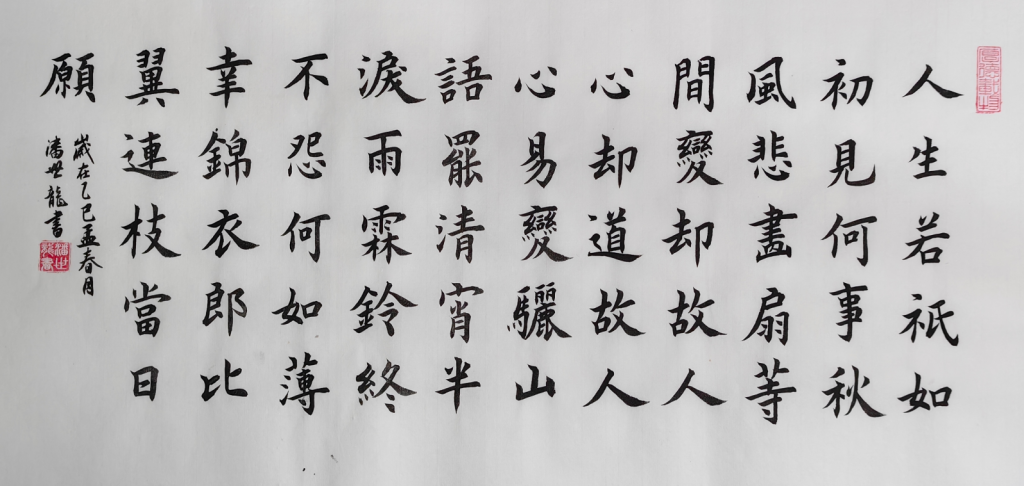 人生若祇如
初見何事秋
風悲畫扇等
間變却故人
心却道故人
心易變驪山
語罷清宵半
淚雨霖鈴終
不怨何如薄
幸錦衣郎比
翼連枝當日
願
歲在乙巳孟春月
潘世龍書